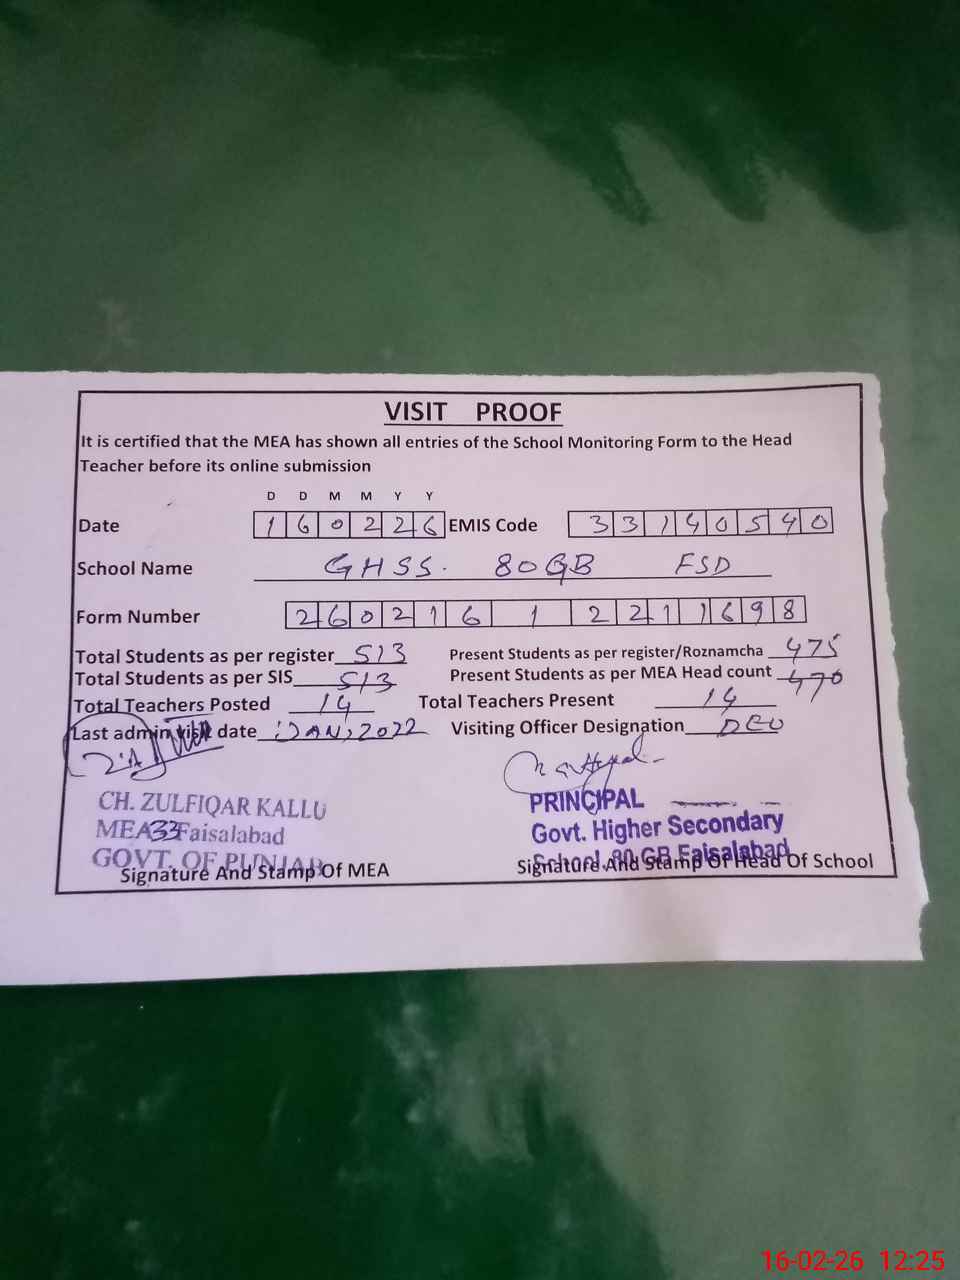 VISIT PROOF
It is certified that the MEA has shown all entries of the School Monitoring Form to the Head
Teacher before its online submission
D D M M Y Y
Date 1 6 0 2 2 6 EMIS Code 3 3 1 4 0 5 4 0
School Name GHSS. 80GB FSD
Form Number 2 6 0 2 1 6 1 2 2 1 1 6 9 8
Total Students as per register 513 Present Students as per register/Roznamcha 475
Total Students as per SIS 513 Present Students as per MEA Head count 470
Total Teachers Posted 14 Total Teachers Present 14
Last admin visit date JAN, 2022 Visiting Officer Designation DEO
CH. ZULFIQAR KALLU
MEA 33 Faisalabad
GOVT. OF PUNJAB
Signature And Stamp Of MEA
PRINCIPAL
Govt. Higher Secondary
School, 80 GB Faisalabad
Signature And Stamp Of Head Of School
16-02-26 12:25